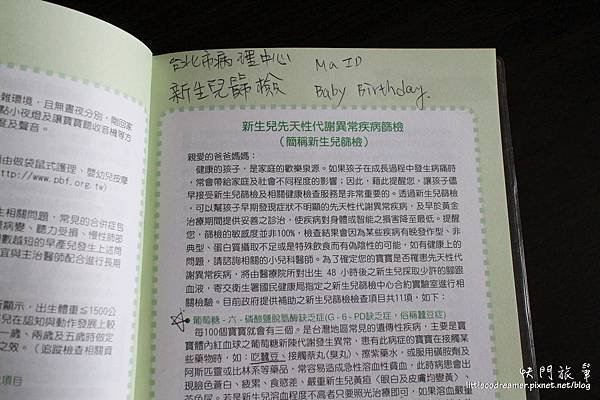 台北市病理中心 Ma ID
新生兒篩檢 Baby Birthday.
雜環境，且無晝夜分別，剛回家
點小夜燈及讓寶寶聽收音機等方
度及聲音。
由做袋鼠式護理、嬰幼兒按摩
http://www.pbf.org.tw)
生相關問題，常見的合併症包
病變、聽力受損、慢性肺部
數越短的早產兒發生上述問
宜與主治醫師配合進行長期
顯示，出生體重≦1500公
兒在認知與動作發展上較
一歲、兩歲及五歲時做定
之效。（追蹤檢查相關資
項目
新生兒先天性代謝異常疾病篩檢
（簡稱新生兒篩檢）
親愛的爸爸媽媽：
健康的孩子，是家庭的歡樂泉源。如果孩子在成長過程中發生病痛時
，常會帶給家庭及社會不同程度的影響；因此，藉此提醒您，讓孩子儘
早接受新生兒篩檢及相關健康檢查服務是非常重要的。透過新生兒篩檢
，可以幫孩子早期發現症狀不明顯的先天性代謝異常疾病，及早於黃金
治療期間提供妥善之診治，使疾病對身體或智能之損害降至最低。提醒
您，篩檢的敏感度並非100%，檢查結果會因為某些疾病有晚發作型、非
典型、蛋白質攝取不足或是特殊飲食而有偽陰性的可能，如有健康上的
問題，請諮詢相關的小兒科醫師。為了確定您的寶寶是否罹患先天性代
謝異常疾病，將由醫療院所對出生 48 小時後之新生兒採取少許的腳跟
血液，寄交衛生署國民健康局指定之新生兒篩檢中心合約實驗室進行相
關檢驗。目前政府提供補助之新生兒篩檢檢查項目共11項，如下：
葡萄糖 - 六 - 磷酸鹽脫氫酶缺乏症(G - 6 - PD缺乏症，俗稱蠶豆症)
每100個寶寶就會有三個。是台灣地區常見的遺傳性疾病，主要是寶
寶體內紅血球之葡萄糖新陳代謝發生異常，患有此病症的寶寶在接觸某
些藥物時，如：吃蠶豆、接觸萘丸（臭丸）、擦紫藥水、或服用磺胺劑及
阿斯匹靈或比林系等藥品，常容易造成急性溶血性貧血，此時病患會出
現臉色蒼白、疲累、食慾差、嚴重新生兒黃疸（眼白及皮膚均變黃）、
茶色尿。若是新生兒溶血程度不高者只要照光治療即可，如果溶血嚴重
快門旅筆
littlecodreamer.pixnet.net/blog